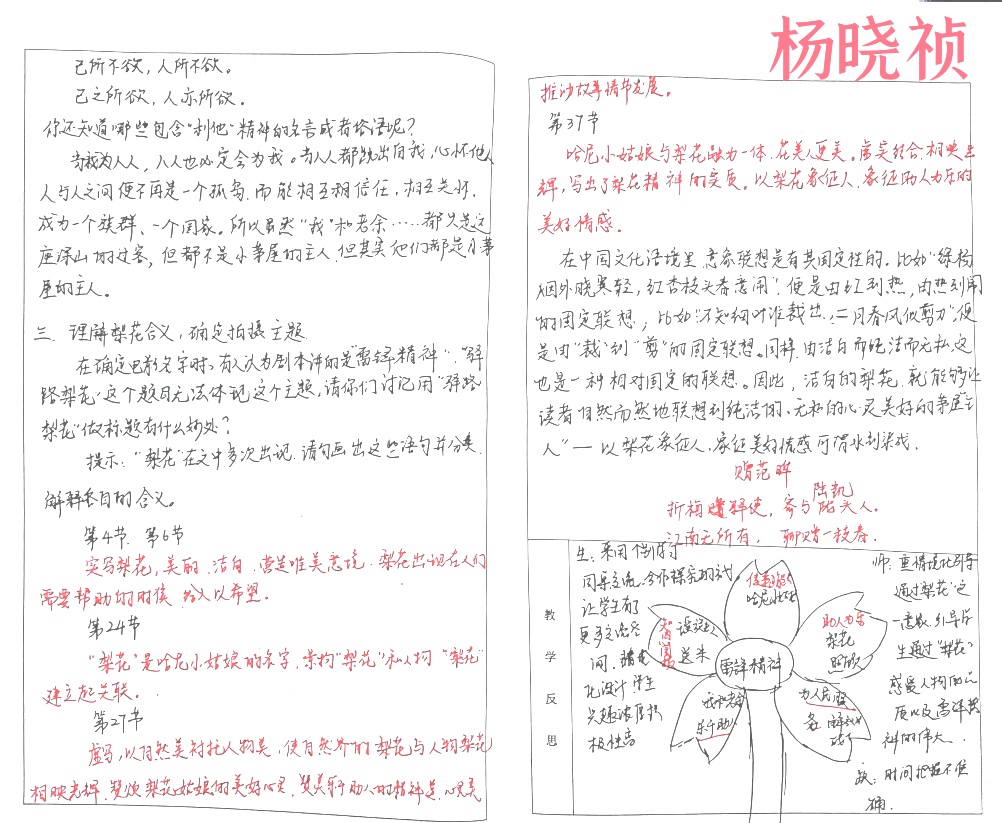 杨晓祯
己所不欲，人所不欲。
己之所欲，人亦所欲。
你还知道哪些包含“利他”精神的名言或者俗语呢？
当我为人人，人人也必定会为我。当人人都跳出自我，心怀他人
人与人之间便不再是一个孤岛，而能相互相信任，相互关怀，
成为一个族群、一个国家。所以虽然“我”和老余……都只是这
座深山的过客，但都不是小茅屋的主人，但其实他们都是小茅
屋的主人。
三、理解梨花含义，确定拍摄主题
在确定电影名字时，有人认为剧本讲的是“雷锋精神”，“驿
路梨花”这个题目无法体现这个主题，请你们讨论用“驿路
梨花”做标题有什么妙处？
提示：“梨花”在文中多次出现，请勾画出这些语句并分类，
解释各自的含义。
第4节、第6节
实写梨花，美丽、洁白，营造唯美意境，梨花出现在人们
需要帮助的时候，给人以希望。
第24节
“梨花”是哈尼小姑娘的名字，景物“梨花”和人物“梨花”
建立起关联。
第27节
虚写，以自然美衬托人物美，使自然界的梨花与人物梨花
相映光辉，赞颂梨花姑娘的美好心灵，赞美乐于助人的精神是，心灵美
推动故事情节发展。
第37节
哈尼小姑娘与梨花融为一体，花美人更美。虚实结合，相映生
辉，写出了梨花精神的实质。以梨花象征人，象征助人为乐的
美好情感。
在中国文化语境里，意象联想是有其固定性的。比如“绿杨
烟外晓寒轻，红杏枝头春意闹”，便是由红到热，由热到闹
的固定联想，比如“不知细叶谁裁出，二月春风似剪刀”，便
是由“裁”到“剪”的固定联想。同样，由洁白而纯洁而无私，这
也是一种相对固定的联想。因此，洁白的梨花，就能够让
读者自然而然地联想到纯洁的、无私的心灵美好的茅屋“主
人”——以梨花象征人，象征美好情感可谓水到渠成。
赠范晔
陆凯
折梅逢驿使，寄与陇头人。
江南无所有，聊赠一枝春。
教学反思
生：采用
同桌交流，合作探究的方式
让学生有了
更多交流空
间，
化设计，学生
兴趣浓厚，积
极性高
雷锋精神
哈尼
助人为乐
梨花
照顾
为人民服
务，解放军
我和老余
乐于助人
送米
师：重情境化引导
通过“梨花”这
一意象，引导学
生通过“梨花”
感受人物的品
质以及雷锋精
神的伟大。
缺：时间把握不准
确。